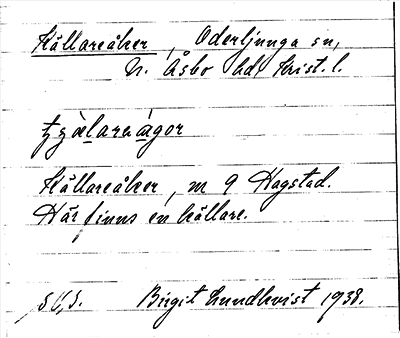 Källareåker, Oderljunga sn,
N. Åsbo hd Krist. l.
Källareåker, m 9 Hagstad.
Här finns en källare.
Birgit Lundkvist 1938.